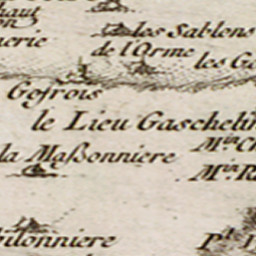 haut
on
nerie
les Sablons
de l'Orme
les Ga
Gofrois
le Lieu Gaschelin
la Maßonniere
Min Ch
Min R
ilonniere
Pt